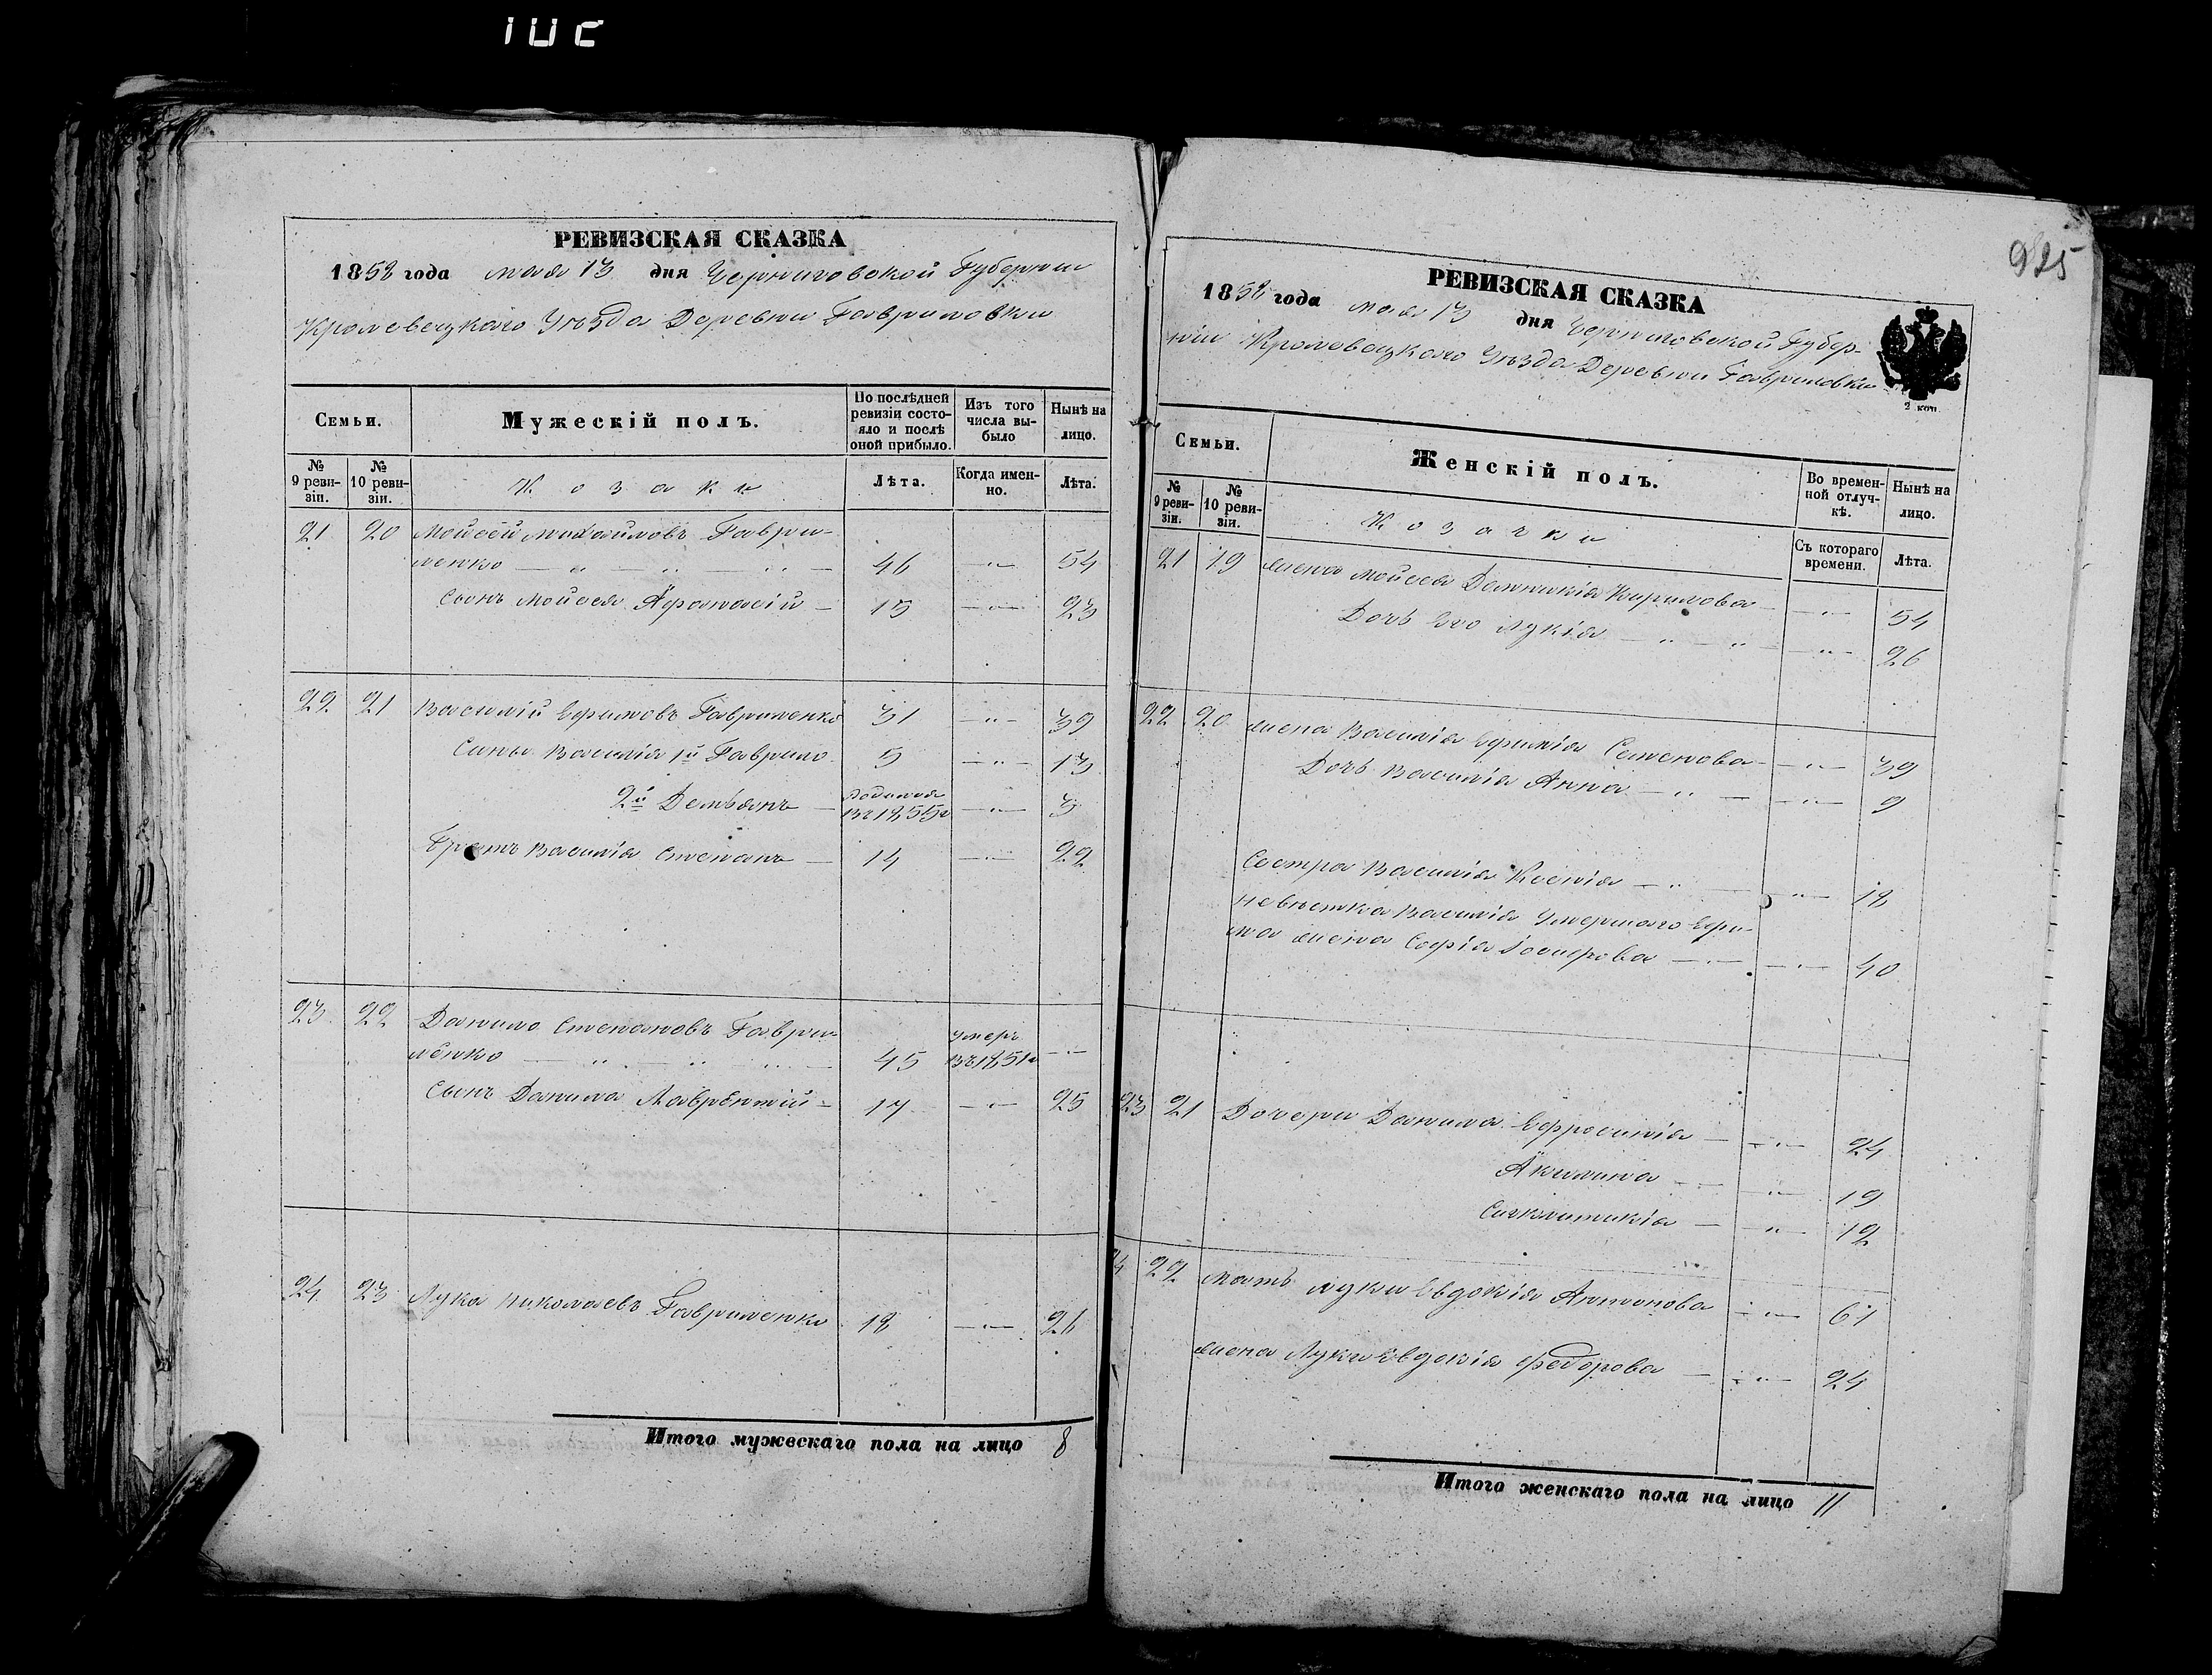 РЕВИЗСКАЯ СКАЗКА
1858 года мая 13 дня Черниговской Губернии
Кролевецкаго Уѣзда Деревни Гавриловки
Семьи.
Мужескій полъ.
По послѣдней ревизіи состояло и послѣ оной прибыло.
Изъ того числа выбыло
Нынѣ на лицо.
№ 9 ревизіи.
№ 10 ревизіи.
Козаки
Лѣта.
Когда именно.
Лѣта.
21 20 Мойсей Михайловъ Гаври-
ленко — „ — „ — „ — 46 — „ — 54
Сынъ Мойсея Афанасій — 15 — „ — 23
22 21 Василій Ефимовъ Гавриленко 31 — „ — 39
Сыны Василія 1й Гаврило 5 — „ — 13
2й Демьянъ — родился въ 1855г — „ — 3
Братъ Василія Степанъ — 14 — „ — 22
23 22 Данило Степановъ Гаври-
ленко — „ — „ — „ — 45 умеръ въ 1851г — „ —
Сынъ Данила Лаврентій — 17 — „ — 25
24 23 Лука Николаевъ Гавриленко 18 — „ — 26
Итого мужескаго пола на лицо 8
925
РЕВИЗСКАЯ СКАЗКА
1858 года мая 13 дня Черниговской Губер-
ніи Кролевецкаго Уѣзда Деревни Гавриловки
2 коп.
Семьи.
Женскій полъ.
Во временной отлучкѣ.
Нынѣ на лицо.
№ 9 ревизіи.
№ 10 ревизіи.
Козачки
Съ котораго времени.
Лѣта.
21 19 Жена Мойсея Домникія Кирилова — „ — 54
Дочь его Лукія — „ — „ — „ — 26
22 20 Жена Василія Ефимія Семенова — „ — 39
Дочь Василія Анна — „ — — „ — 9
Сестра Василія Ксенія — „ — „ — 18
Невѣстка Василія Умершаго Ефи-
ма жена Софія — „ — — „ — 40
23 21 Дочери Данила Ефросинія — — „ — 24
Акилина — — „ — 19
Сигклитикія — — „ — 12
24 22 Мать Луки Евдокія Антонова — „ — 61
Жена Луки Евдокія Федорова — — „ — 24
Итого женскаго пола на лицо 11